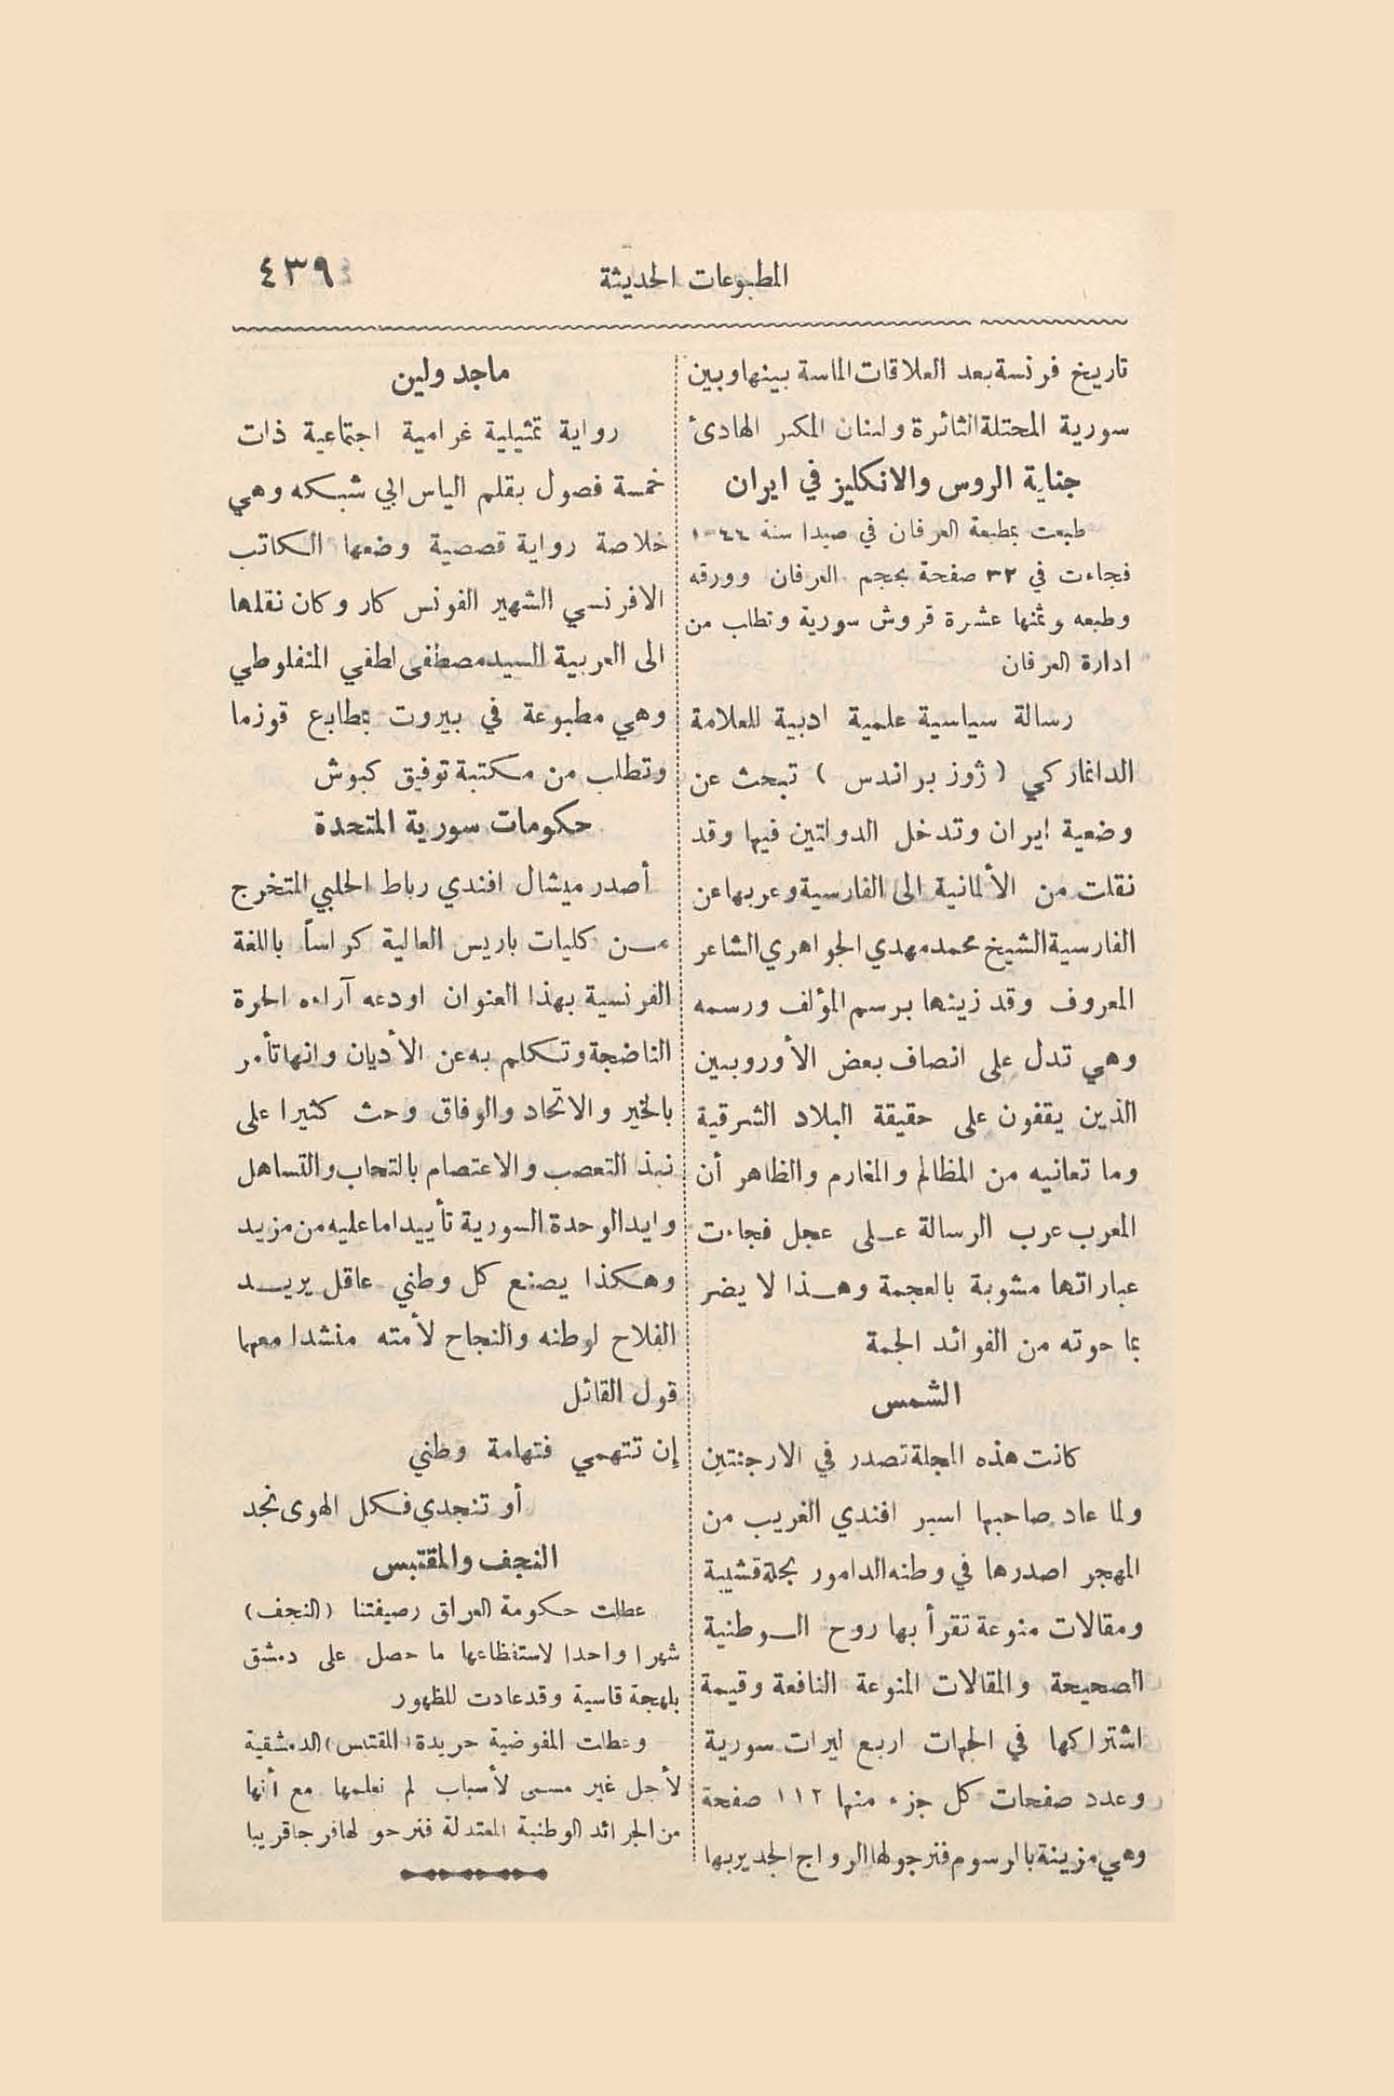 المطبوعات الحديثة
٤٣٩
تاريخ فرنسة بعد العلاقات الماسة بينها وبين
سورية المحتلة الثائرة ولبنان المكبر الهادئ
جناية الروس والانكليز في ايران
طبعت بمطبعة العرفان في صيدا سنة ١٠٤٤
فجاءت في ٣٢ صفحة بحجم العرفان وورقه
وطبعه وثمنها عشرة قروش سورية وتطلب من
ادارة العرفان
رسالة سياسية علمية ادبية للعلامة
الدانماركي ( ژوز براندس ) تبحث عن
وضعية ايران وتدخل الدولتين فيها وقد
نقلت من الألمانية الى الفارسية وعربها عن
الفارسية الشيخ محمد مهدي الجواهري الشاعر
المعروف وقد زينها برسم المؤلف ورسمه
وهي تدل على انصاف بعض الأوروبيين
الذين يقفون على حقيقة البلاد الشرقية
وما تعانيه من المظالم والمغارم والظاهر أن
المعرب عرب الرسالة على عجل فجاءت
عباراتها مشوبة بالعجمة وهذا لا يضر
بما حوته من الفوائد الجمة
الشمس
كانت هذه المجلة تصدر في الارجنتين
ولما عاد صاحبها اسبر افندي الغريب من
المهجر اصدرها في وطنه الدامور بحلة قشيبة
ومقالات منوعة تقرأ بها روح الوطنية
الصحيحة والمقالات المنوعة النافعة وقيمة
اشتراكها في الجهات اربع ليرات سورية
وعدد صفحات كل جزء منها ١١٢ صفحة
وهي مزينة بالرسوم فنرجو لها الرواج الجدير بها
ماجدولين
رواية تمثيلية غرامية اجتماعية ذات
خمسة فصول بقلم الياس ابي شبكه وهي
خلاصة رواية قصصية وضعها الكاتب
الافرنسي الشهير الفونس كار وكان نقلها
الى العربية السيد مصطفى لطفي المنفلوطي
وهي مطبوعة في بيروت بمطابع قوزما
وتطلب من مكتبة توفيق كبوش
حكومات سورية المتحدة
أصدر ميشال افندي رباط الحلبي المتخرج
من كليات باريس العالية كراساً باللغة
الفرنسية بهذا العنوان اودعه آراءه الحرة
الناضجة وتكلم به عن الأديان وانها تأمر
بالخير والاتحاد والوفاق وحث كثيرا على
نبذ التعصب والاعتصام بالتحاب والتساهل
وايد الوحدة السورية تأييدا ما عليه من مزيد
وهكذا يصنع كل وطني عاقل يريد
الفلاح لوطنه والنجاح لأمته منشدا معها
قول القائل
إن تتهمي فتهامة وطني
أو تنجدي فكل الهوى نجد
النجف والمقتبس
عطلت حكومة العراق رصيفتنا (النجف)
شهرا واحدا لاستفظاعها ما حصل على دمشق
بلهجة قاسية وقد عادت للظهور
وعطلت المفوضية جريدة (المقتبس) الدمشقية
لأجل غير مسمى لأسباب لم نعلمها مع أنها
من الجرائد الوطنية المعتدلة فنرجو لها فرجا قريبا